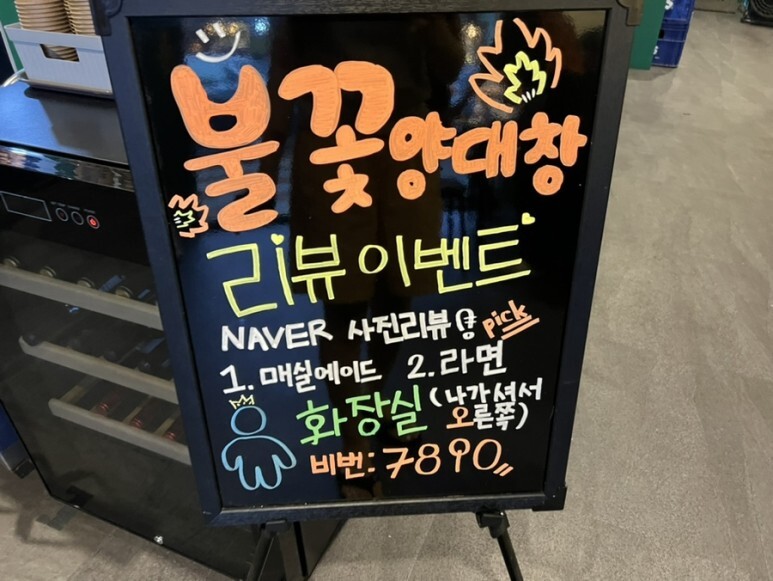 불꽃양대창
리뷰이벤트
NAVER 사진리뷰 pick
1. 매실에이드 2. 라면
화장실 (나가셔서 오른쪽)
비번: 7890